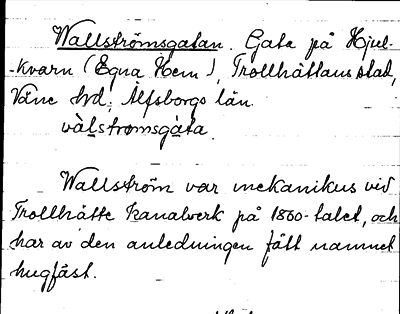 Wallströmsgatan. Gata på Hjul-
-kvarn (Egna Hem), Trollhättans stad,
Väne hd, Älfsborgs län.
vàlstromsgàta.
Wallström var mekanikus vid
Trollhätte kanalverk på 1800-talet, och
har av den anledningen fått namnet
hugfäst.